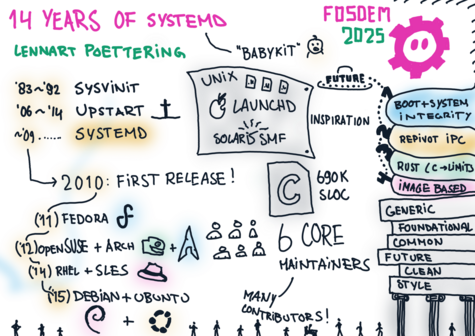 14 YEARS OF SYSTEMD
LENNART POETTERING
"BABYKIT"
FOSDEM
2025
'83~'92 SYSVINIT
'06~'14 UPSTART
~'09...... SYSTEMD
UNIX
LAUNCHD
SOLARIS SMF
INSPIRATION
FUTURE
BOOT+SYSTEM
INTEGRITY
REPIVOT IPC
RUST
IMAGE BASED
2010: FIRST RELEASE!
C
690K
SLOC
('11) FEDORA
('12) OPENSUSE + ARCH
+
('14) RHEL + SLES
('15) DEBIAN + UBUNTU
+
6 CORE
MAINTAINERS
MANY
CONTRIBUTORS!
GENERIC
FOUNDATIONAL
COMMON
FUTURE
CLEAN
STYLE